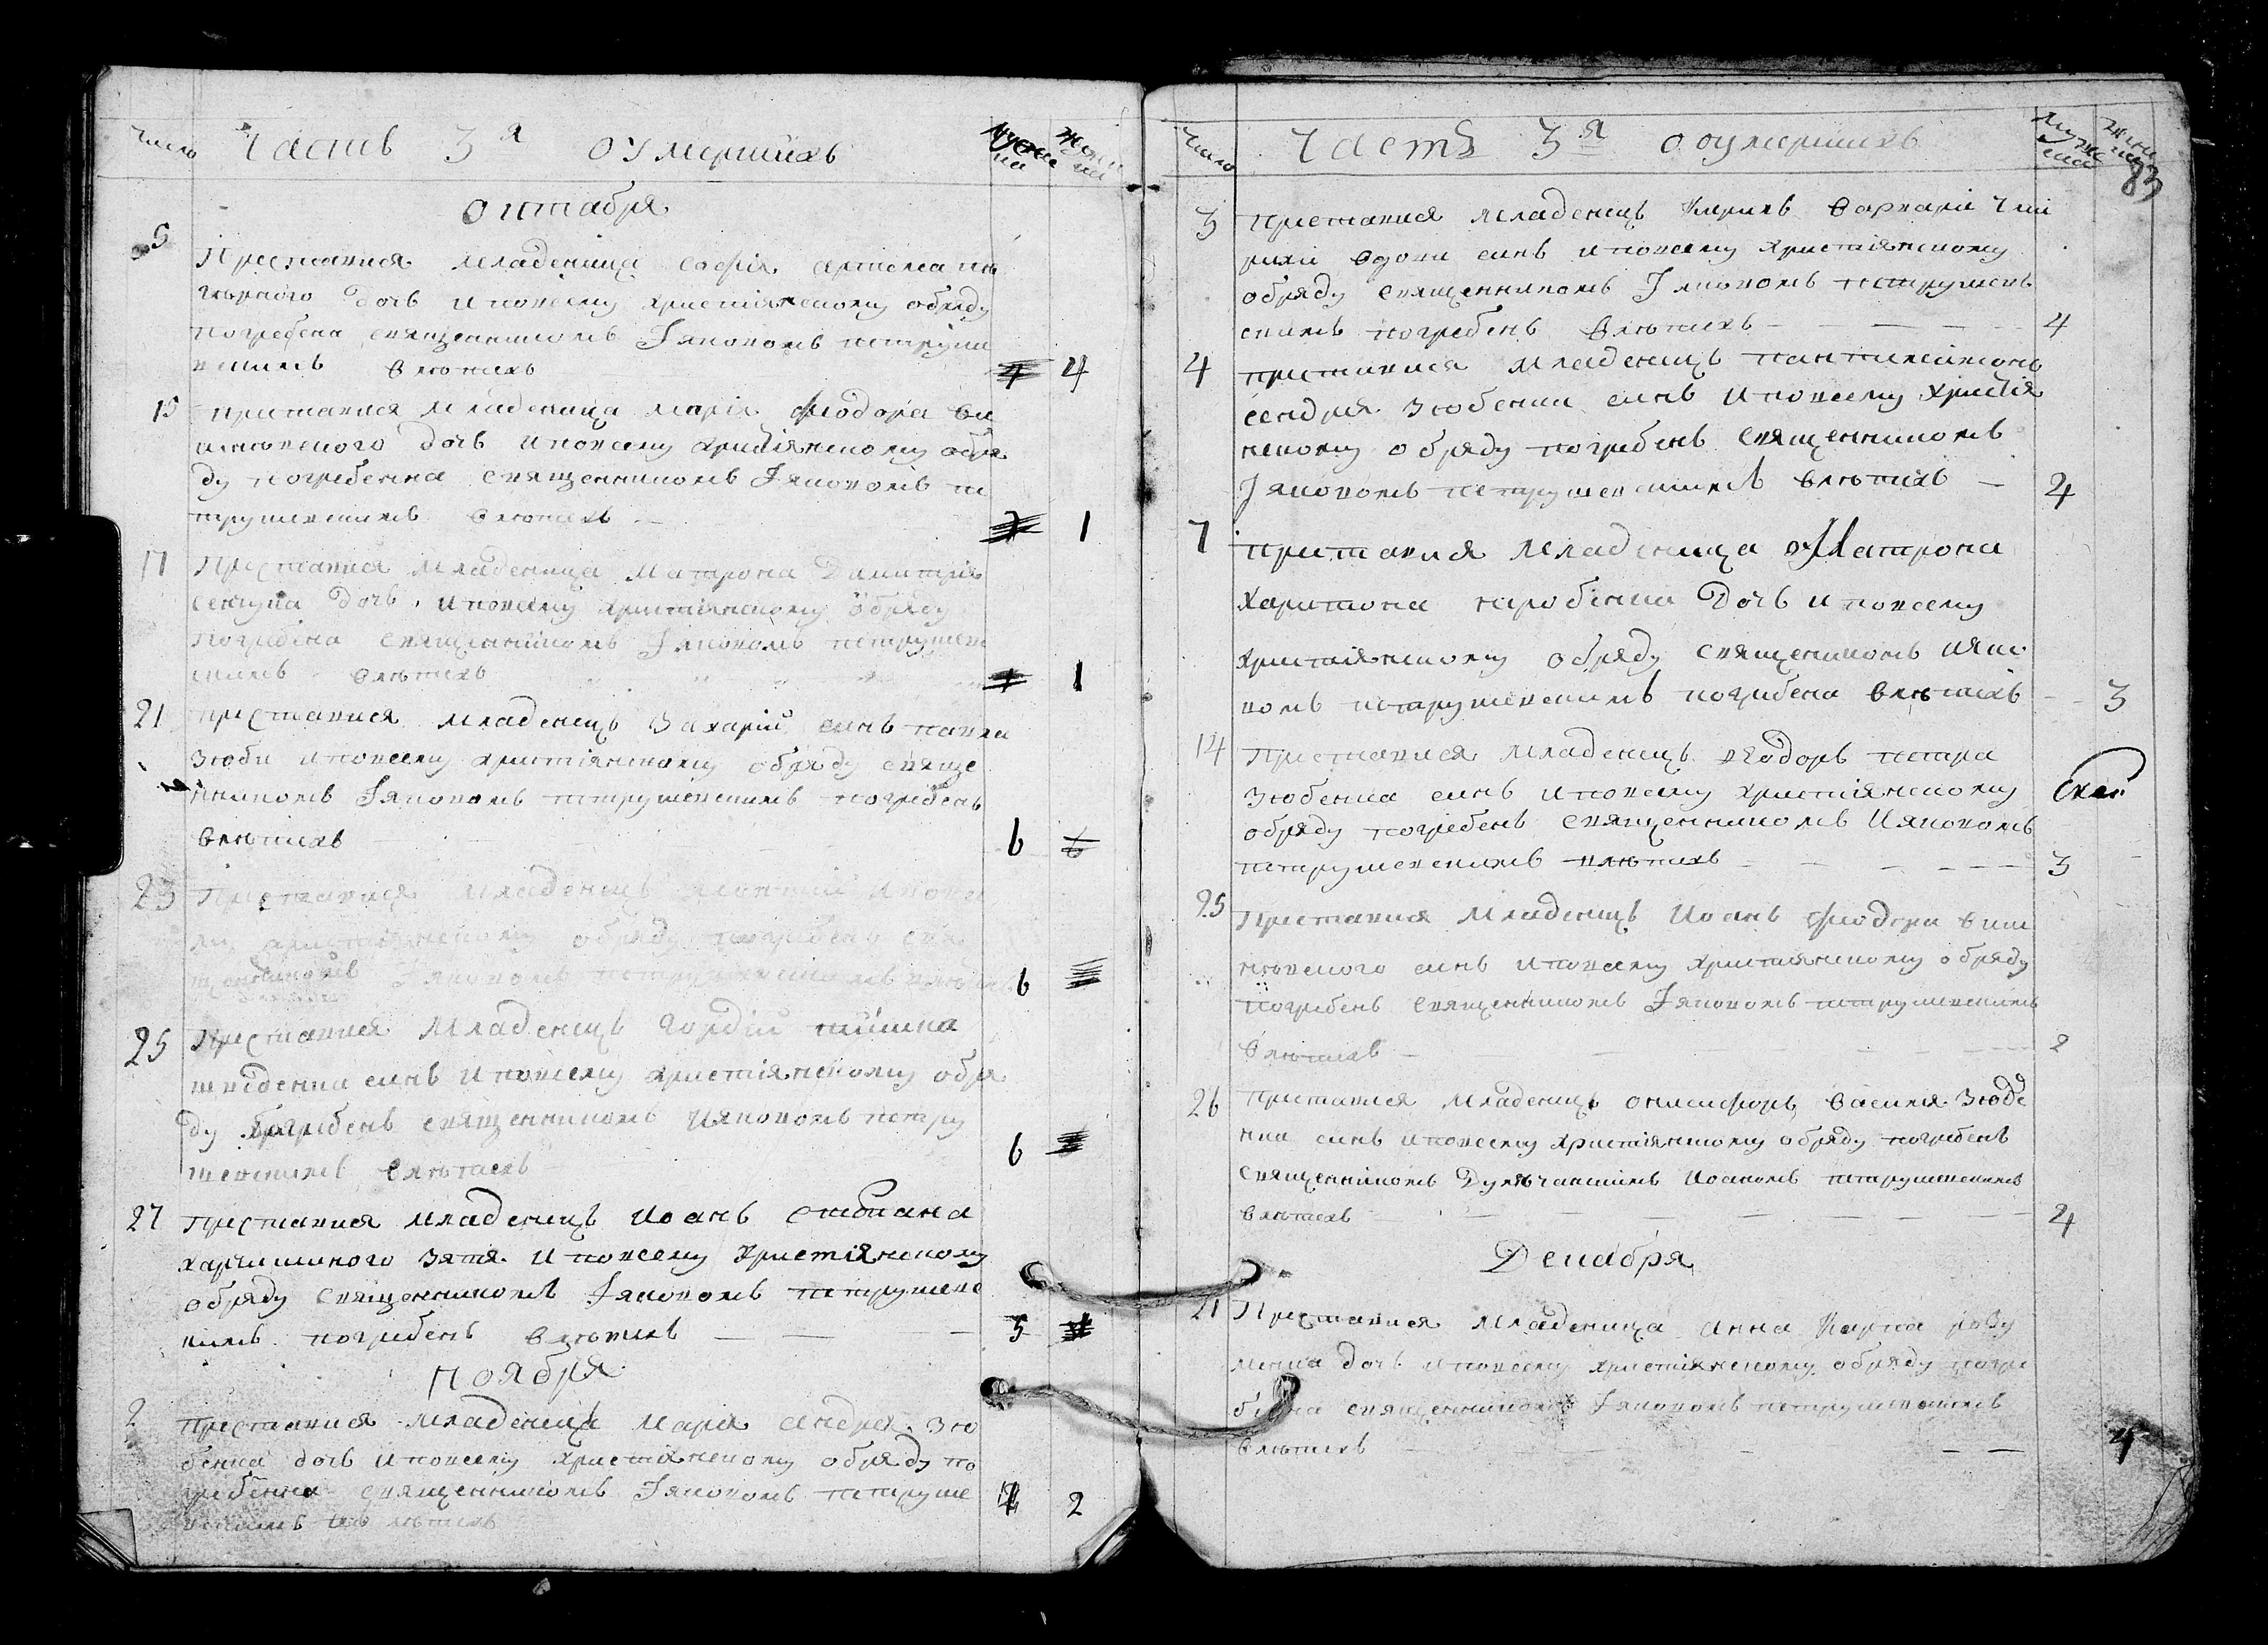 число Часть 3я о умершихъ мужеска женски
октября
5 Преставися младеница софія артема па
дочь иповсему христіянскому обряду
погребена священникомъ Іяковомъ петруше
вскимъ влѣтехъ 4 4
15 преставися младеница марія Федора ви
шнювского дочь и повсему христіянскому обря
ду погребенна священникомъ Іяковомъ пе
трушевскимъ влѣтехъ 1
17 Преставися младеница Матрона Димитрія
сенчука дочь и повсему христіянскому обряду
погребена священникомъ Іяковомъ петрушев
скимъ влѣтехъ 1 1
21 преставися младенецъ Захарій синъ павла
Зюби и повсему христіянскому обряду свяще
нникомъ Іяковомъ петрушевскимъ погребенъ
влѣтехъ 6 6
23 Преставися младенецъ и повсе
му христіянскому обряду погребенъ свя
щенникомъ Іяковомъ петрушевскимъ влѣтехъ 6
25 Преставися младенецъ Гордій
шведенка синъ и повсему христіянскому обря
ду погребенъ священникомъ Ияковомъ петру
шевскимъ влѣтехъ 6
27 преставися младенецъ Иоанъ стефана
зятя и повсему христіянскому
обряду священникомъ Іяковомъ петрушевс
кимъ погребенъ влѣтехъ 5
ноября
2 преставися младеница Марія андрея Зю
бенка дочь и повсему христіянскому обряду по
гребенна священникомъ Іяковомъ петруше
вскимъ влѣтехъ 2
число Часть 3я о оумершихъ мужеска женска
83
3 преставися младенецъ Кирилъ
вдови синъ и повсему христіянскому
обряду священникомъ Іяковомъ петрушевъ
скимъ погребенъ влѣтехъ 4
4 преставися младенецъ пантилеймонъ
андрея Зюбенка синъ и повсему христія
нскому обряду погребенъ священникомъ
Іяковомъ петрушевскимъ влѣтехъ 4
7 преставися младеница Матрона
Харитона коробенка дочь и повсему
христіянскому обряду священикомъ ияко
вомъ петрушевскимъ погребена влѣтехъ 3
14 Преставися младенецъ Федоръ петра
Зюбенка синъ и повсему христіянскому
обряду погребенъ священникомъ Ияковомъ
петрушевскимъ влѣтехъ 3
25 Преставися младенецъ Иоанъ Федора виш
нювского синъ и повсему христіянскому обряду
погребенъ священникомъ Іяковомъ петрушевскимъ
влѣтехъ 2
26 преставися младенецъ онисифоръ василя Зюбе
нка синъ и повсему христіянскому обряду погребенъ
священникомъ Иоаномъ петрушевскимъ
влѣтехъ 4
Декабря
21 Преставися младеница Анна Карпа
дочь и повсему христіянскому обряду погре
бенна священникомъ Іяковомъ петрушевскимъ
влѣтехъ 4